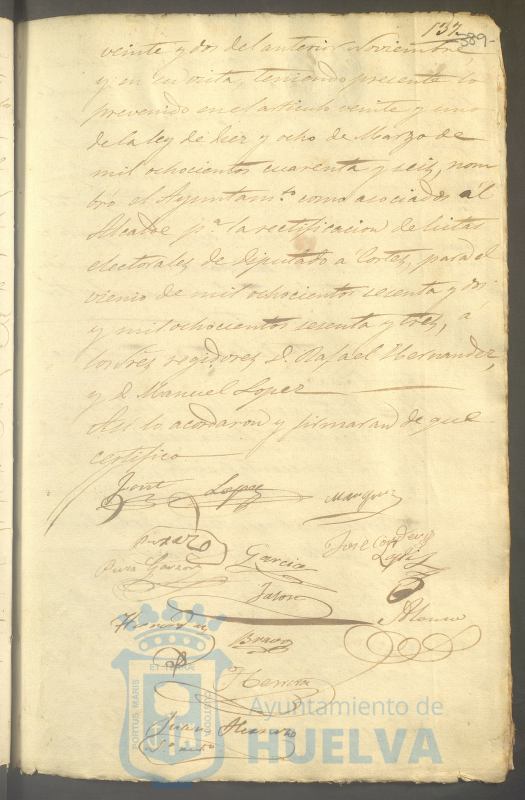 137
389-
veinte y dos del anterior Noviembre,
y en su vista, teniendo presente lo
prevenido en el articulo veinte y uno
de la ley de diez y ocho de Marzo de
mil ochocientos cuarenta y seis, nom
bró el Ayuntam.to como asociados al
Alcalde p.a la rectificacion de listas
electorales de Diputado a Cortes, para el
vienio de mil ochocientos sesenta y dos
y mil ochocientos sesenta y tres, a
los Sres regidores D. Rafael Hernandez,
y D. Manuel Lopez
Asi lo acordaron y firmaran de que
certifico
Lopez Marquez
Pizarro Garcia José
Garzon
Alonso
Hernandez Bravo
Herrera
Juan
PORTUS MARIS ET TERRAE CUSTODIA
Ayuntamiento de
HUELVA